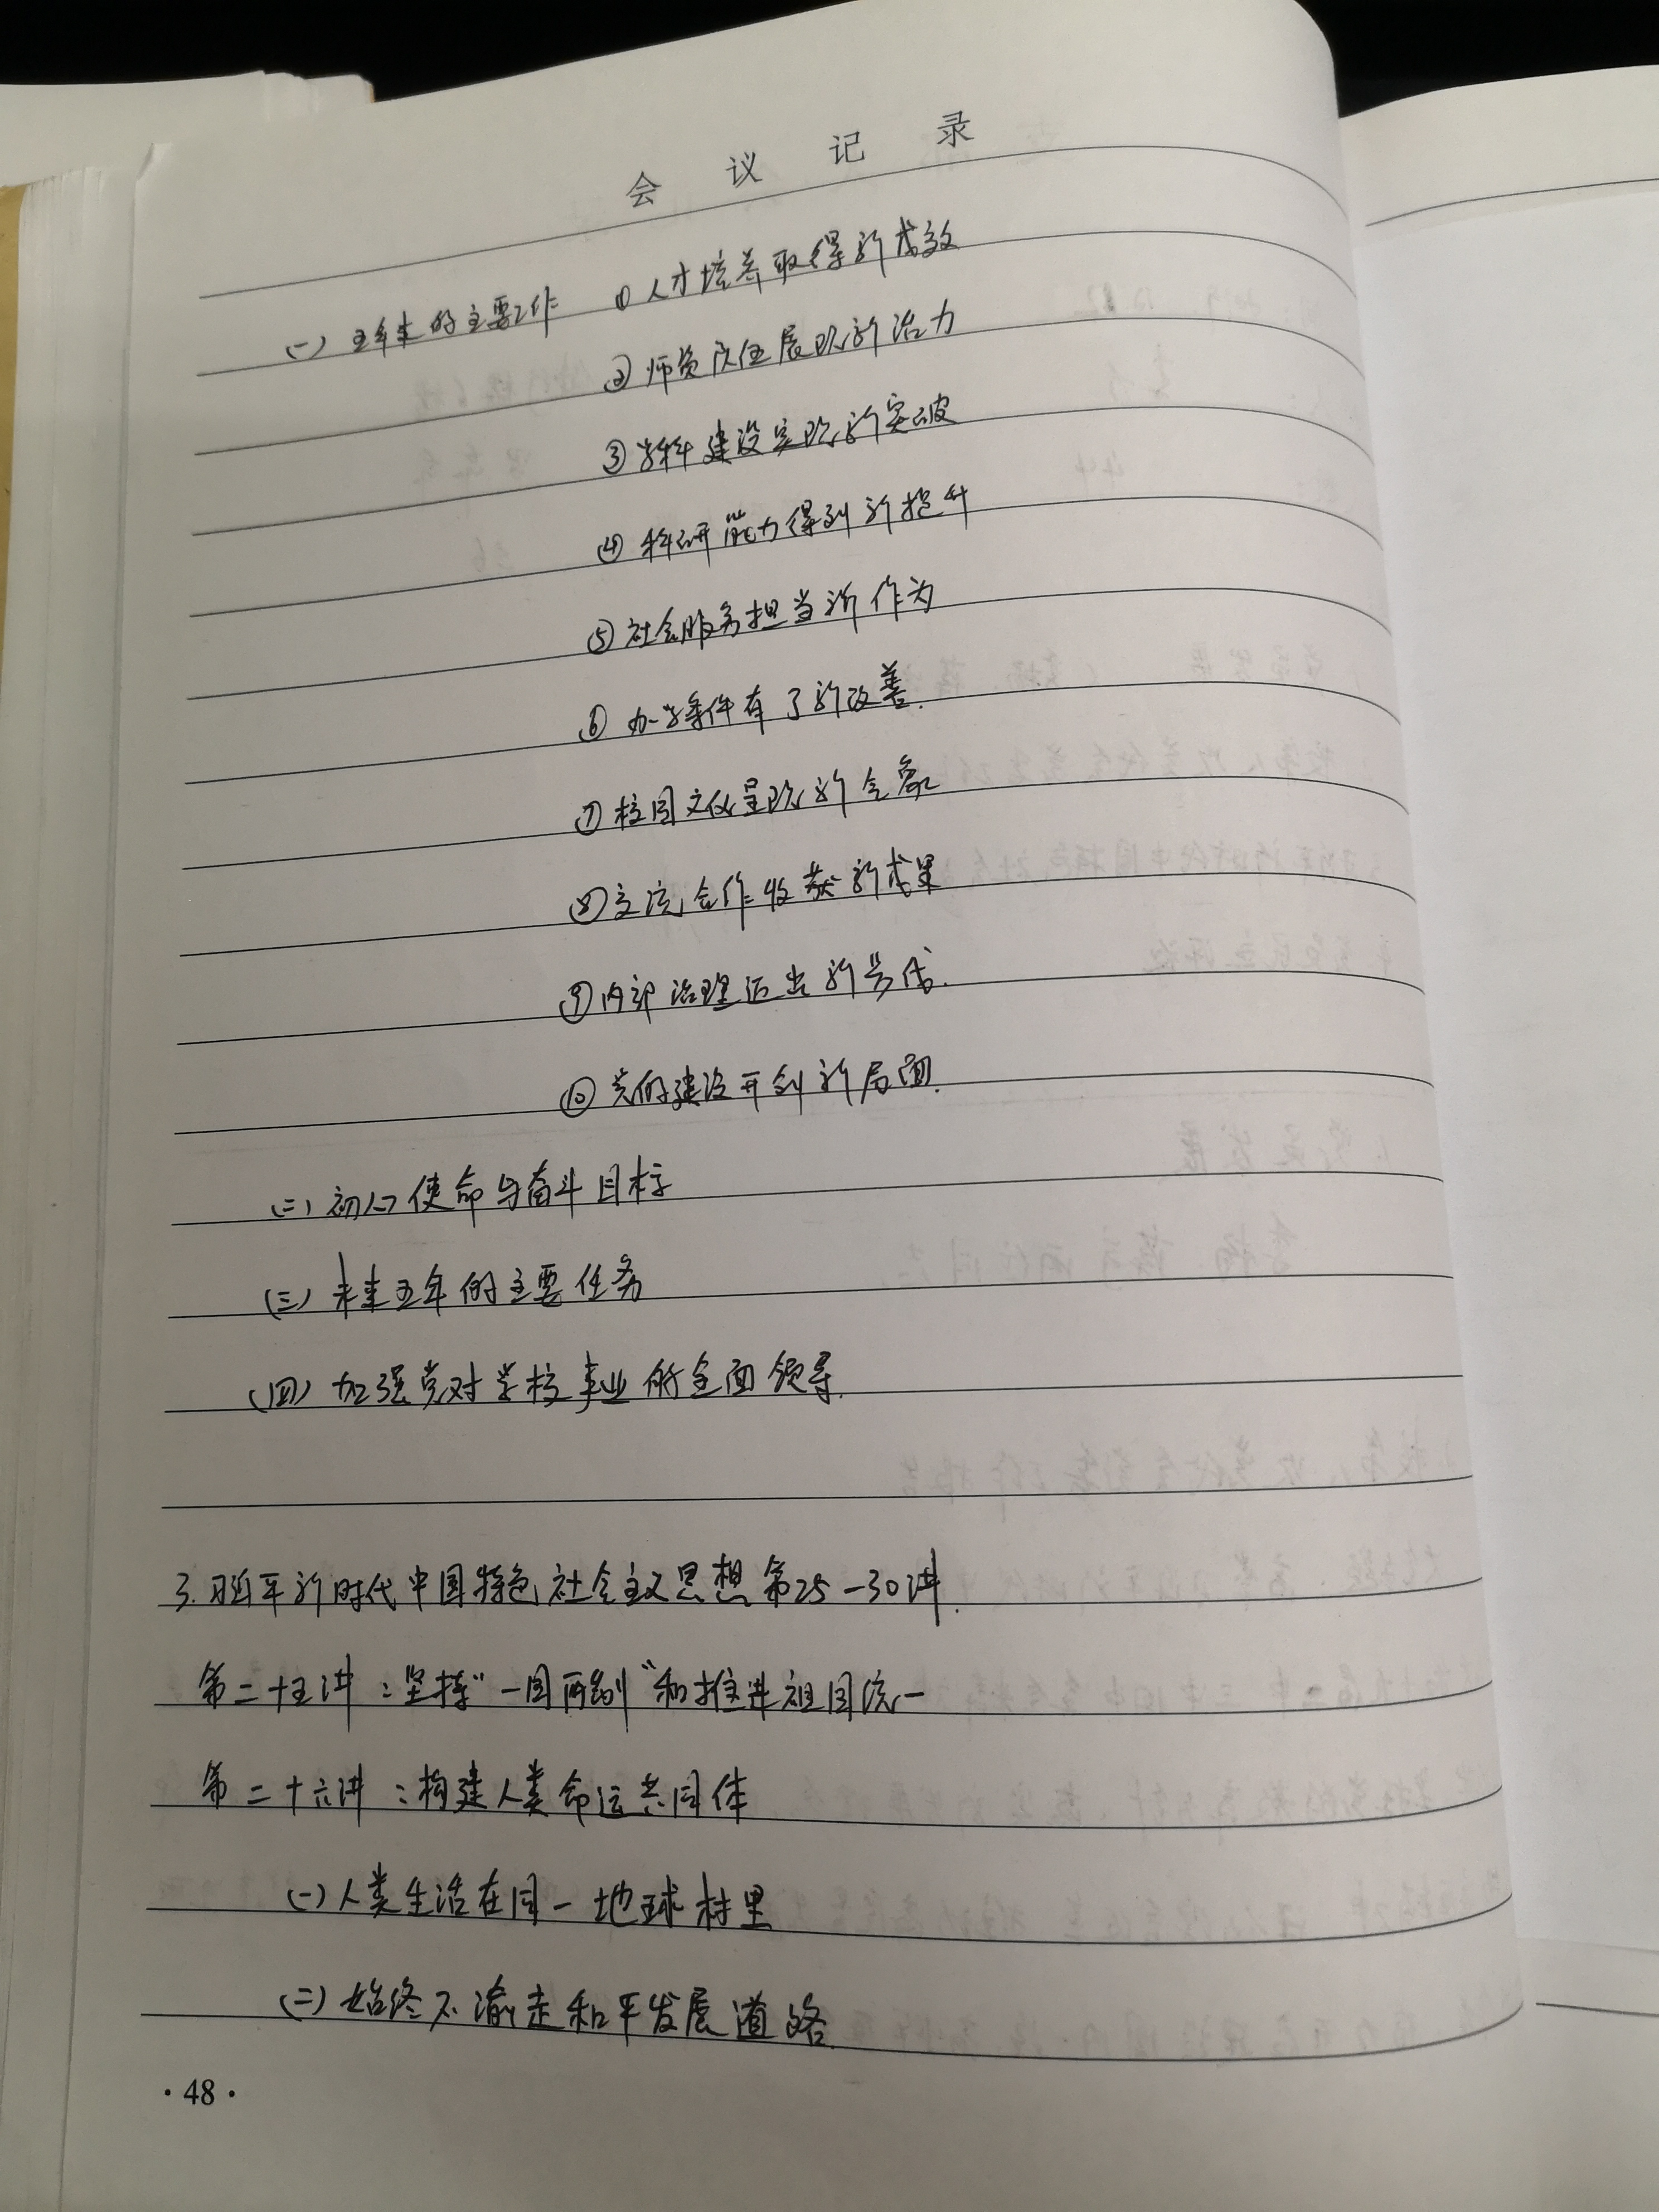 会议记录
(一) 五年来的主要工作 ①人才培养取得新成效
②师资队伍展现新活力
③学科建设实现新突破
④科研能力得到新提升
⑤社会服务担当新作为
⑥办学条件有了新改善.
⑦校园文化呈现新气象
⑧交流合作收获新成果
⑨内部治理迈出新步伐.
⑩党的建设开创新局面.
(二) 初心使命与奋斗目标
(三) 未来五年的主要任务
(四) 加强党对学校事业的全面领导.
3. 习近平新时代中国特色社会主义思想第25-30讲.
第二十五讲：坚持“一国两制”和推进祖国统一
第二十六讲：构建人类命运共同体
(一) 人类生活在同一地球村里
(二) 始终不渝走和平发展道路.
·48·